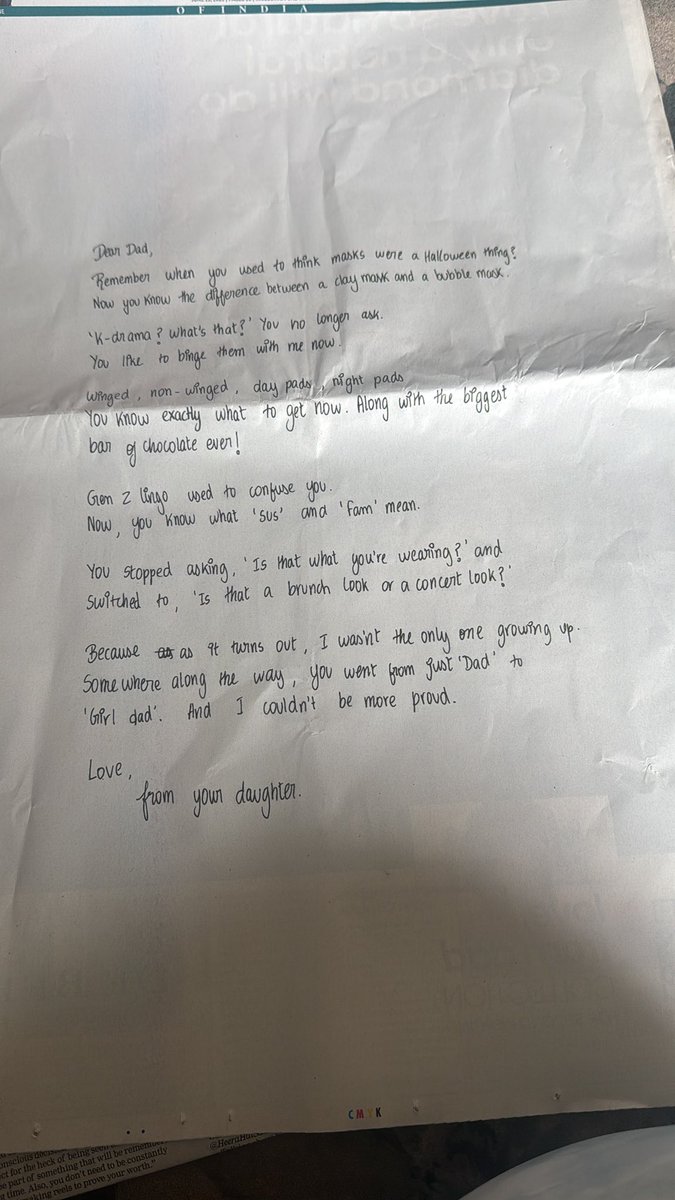 OF INDIA
Dear Dad,
Remember when you used to think masks were a Halloween thing?
Now you know the difference between a clay mask and a bubble mask.
'K-drama? What's that?' You no longer ask.
You like to binge them with me now.
Winged, non-winged, day pads, night pads
You know exactly what to get now. Along with the biggest
bar of chocolate ever!
Gen Z lingo used to confuse you.
Now, you know what 'sus' and 'fam' mean.
You stopped asking, 'Is that what you're wearing?' and
switched to, 'Is that a brunch look or a concert look?'
Because as it turns out, I wasn't the only one growing up.
Somewhere along the way, you went from just 'Dad' to
'Girl dad'. And I couldn't be more proud.
Love,
from your daughter.
CMYK
ct for the heck of being seen
e part of something that will be remember
time. Also, you don't need to be constantly
king reels to prove your worth."